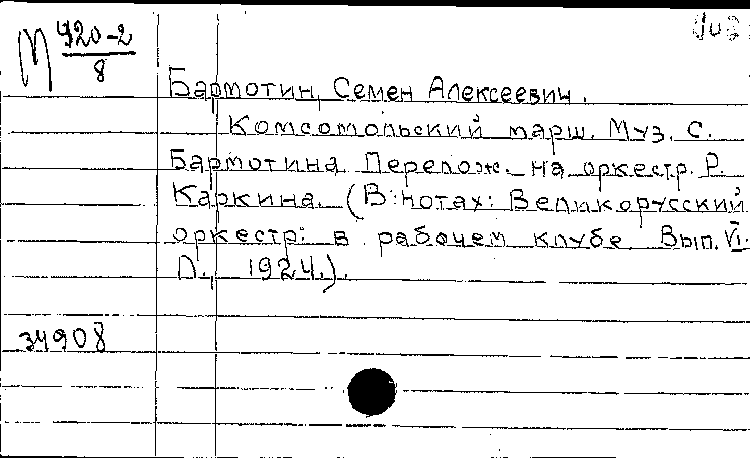 М 420-2
8
Бармотин, Семен Алексеевич.
Комсомольский марш. Муз. С.
Бармотина. Перелож. на оркестр. Р.
Каркина. (В нотах: Великорусский
оркестр: в рабочем клубе. Вып. VI.
Л., 1924.).
34908